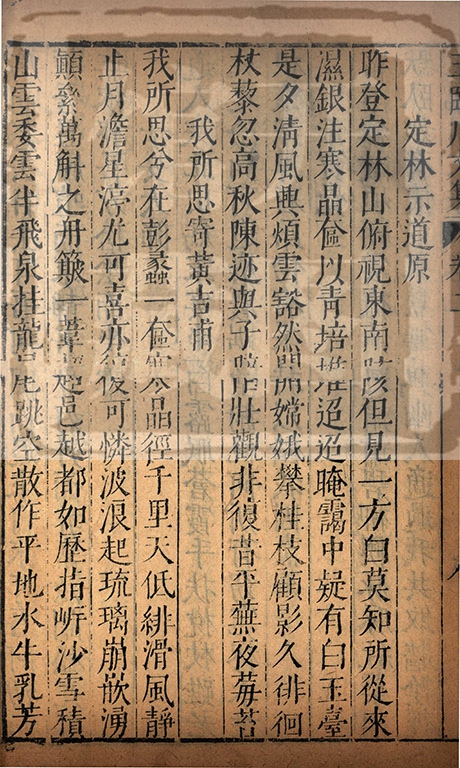 王臨川文集 卷二 八
定林示道原
昨登定林山俯視東南陔但見一方白莫知所從來
濕銀注寒晶奩以青培堆迢迢晻靄中疑有白玉臺
是夕清風興煩雲豁然開嫦娥攀桂枝顧影久徘徊
杖藜忽高秋陳迹與子陪壯觀非復昔平蕪夜莓苔
我所思寄黃吉甫
我所思兮在彭蠡一奩寒晶徑千里天低緋滑風靜
止月澹星渟尤可喜亦復可憐波浪起琉璃崩嵌湧
顛絫萬斛之舟簸一葦超邑越都如歷指沙雪積
山雲委雲半飛泉挂龍尾跳空散作平地水牛乳芳